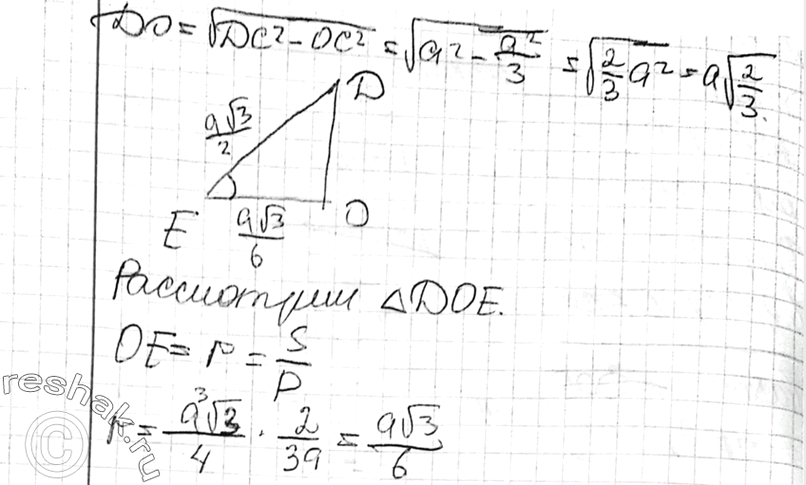 DO = √(DC² - OC²) = √(a² - a²/3) = √(2/3 a²) = a√(2/3).
D
a√3/2
E
O
a√3/6
Рассмотрим △DOE.
OE = r = S/p
r = a³√3/4 · 2/3a = a√3/6
reshak.ru
©